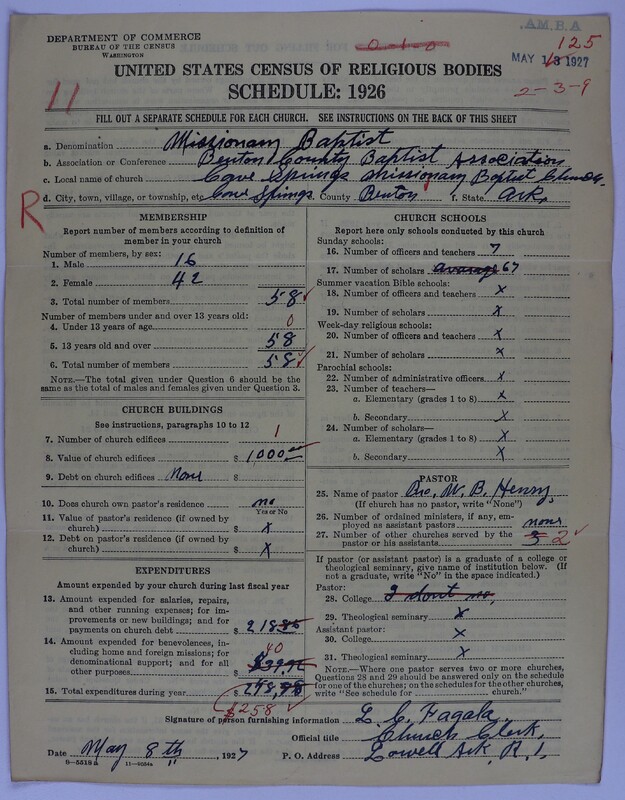 A.B.MA.
DEPARTMENT OF COMMERCE
BUREAU OF THE CENSUS
WASHINGTON
0-1-0
125
MAY 13 1927
UNITED STATES CENSUS OF RELIGIOUS BODIES
SCHEDULE: 1926
11
2-3-9
FILL OUT A SEPARATE SCHEDULE FOR EACH CHURCH. SEE INSTRUCTIONS ON THE BACK OF THIS SHEET
a. Denomination Missionary Baptist
b. Association or Conference Benton County Baptist Association
c. Local name of church Cave Springs Missionary Baptist Church.
d. City, town, village, or township, etc Cave Springs. County Benton f. State Ark.
R
MEMBERSHIP
Report number of members according to definition of
member in your church
Number of members, by sex:
1. Male 16
2. Female 42
3. Total number of members 58
Number of members under and over 13 years old:
4. Under 13 years of age 0
5. 13 years old and over 58
6. Total number of members 58
NOTE.—The total given under Question 6 should be
the same as the total of males and females given under Question 3.
CHURCH BUILDINGS
See instructions, paragraphs 10 to 12
7. Number of church edifices 1
8. Value of church edifices $ 1000
9. Debt on church edifices None $
10. Does church own pastor's residence no
Yes or No
11. Value of pastor's residence (if owned by
church) $ X
12. Debt on pastor's residence (if owned by
church) $ X
EXPENDITURES
Amount expended by your church during last fiscal year
13. Amount expended for salaries, repairs,
and other running expenses; for im-
provements or new buildings; and for
payments on church debt $ 218
14. Amount expended for benevolences, in-
cluding home and foreign missions; for
denominational support; and for all
other purposes 40
15. Total expenditures during year $
$258
CHURCH SCHOOLS
Report here only schools conducted by this church
Sunday schools:
16. Number of officers and teachers 7
17. Number of scholars average 67
Summer vacation Bible schools:
18. Number of officers and teachers X
19. Number of scholars X
Week-day religious schools:
20. Number of officers and teachers X
21. Number of scholars X
Parochial schools:
22. Number of administrative officers X
23. Number of teachers—
a. Elementary (grades 1 to 8) X
b. Secondary X
24. Number of scholars—
a. Elementary (grades 1 to 8) X
b. Secondary X
PASTOR
25. Name of pastor W. B. Henry,
(If church has no pastor, write "None")
26. Number of ordained ministers, if any, em-
ployed as assistant pastors none
27. Number of other churches served by the
pastor or his assistants 3 2
If pastor (or assistant pastor) is a graduate of a college or
theological seminary, give name of institution below. (If
not a graduate, write "No" in the space indicated.)
Pastor:
28. College I dont no,
29. Theological seminary X
Assistant pastor:
30. College X
31. Theological seminary X
NOTE.—Where one pastor serves two or more churches,
Questions 28 and 29 should be answered only on the schedule
for one of the churches; on the schedules for the other churches,
write "See schedule for church."
Signature of person furnishing information L. C. Fagala.
Official title Church Clerk,
Date May 8th, 1927 P. O. Address Lowell Ark, R. 1.
8-5518a 11-9554a